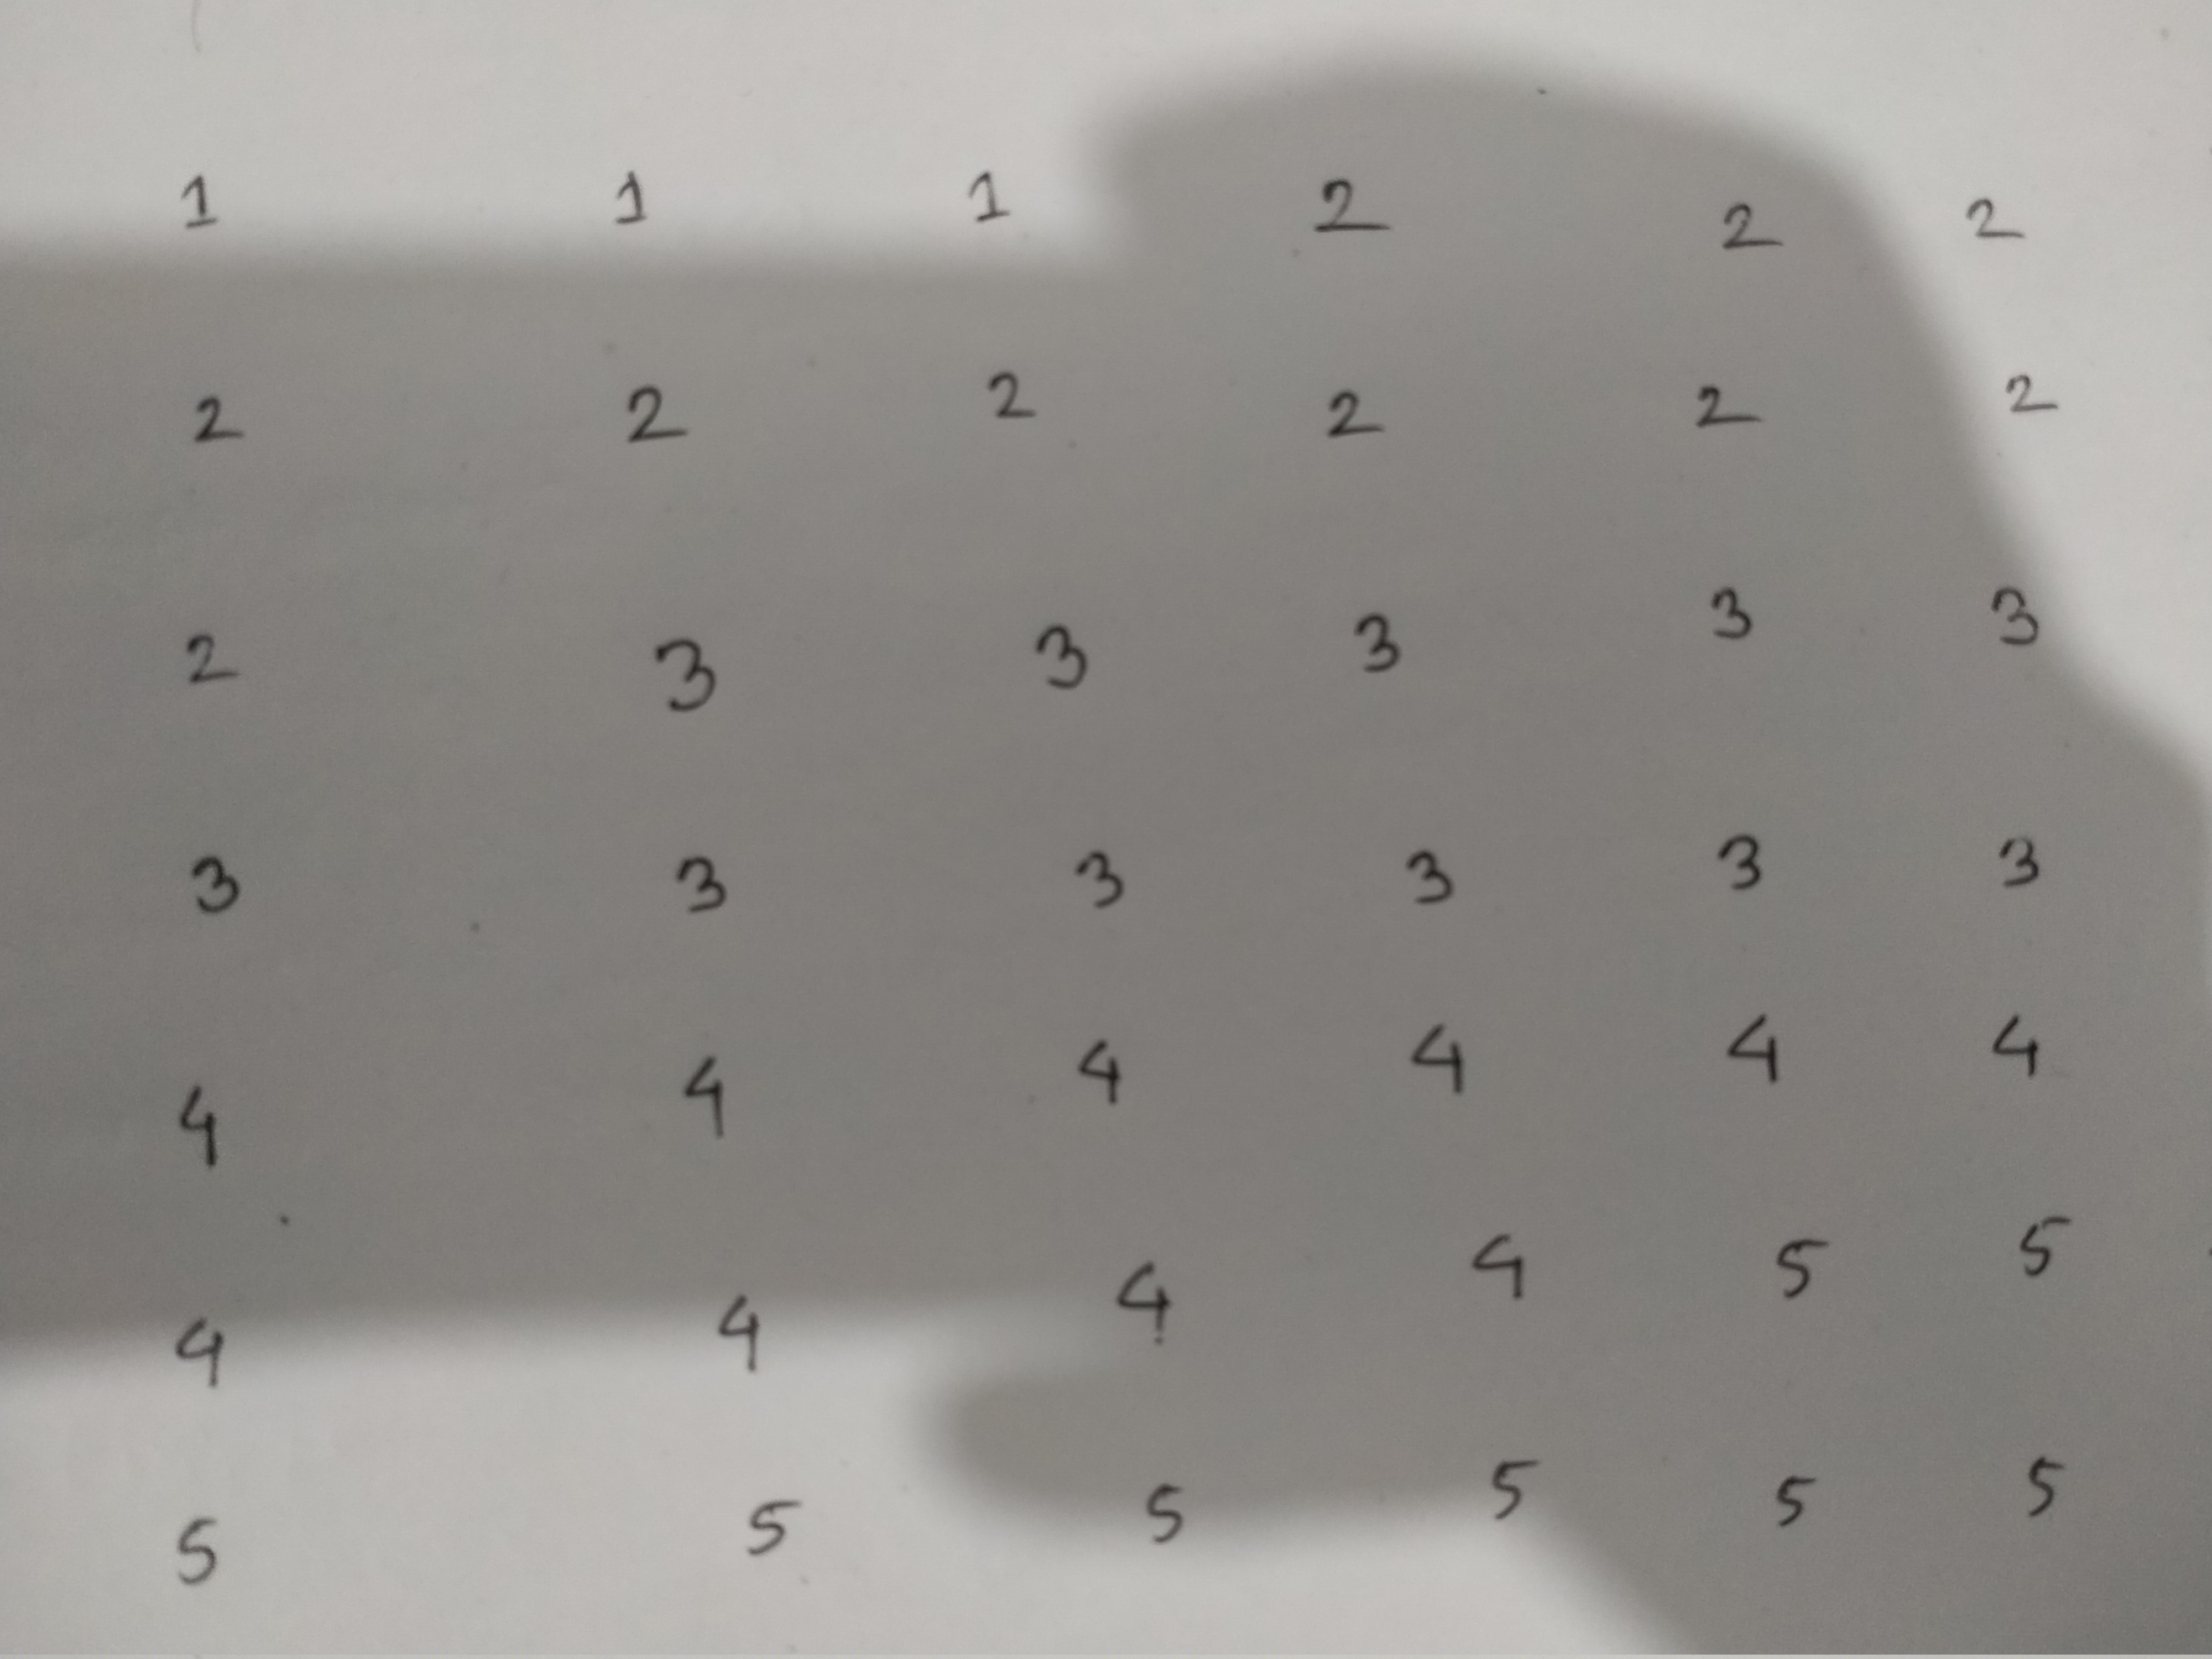 1 1 1 2 2 2
2 2 2 2 2 2
2 3 3 3 3 3
3 3 3 3 3 3
4 4 4 4 4 4
4 4 4 4 5 5
5 5 5 5 5 5